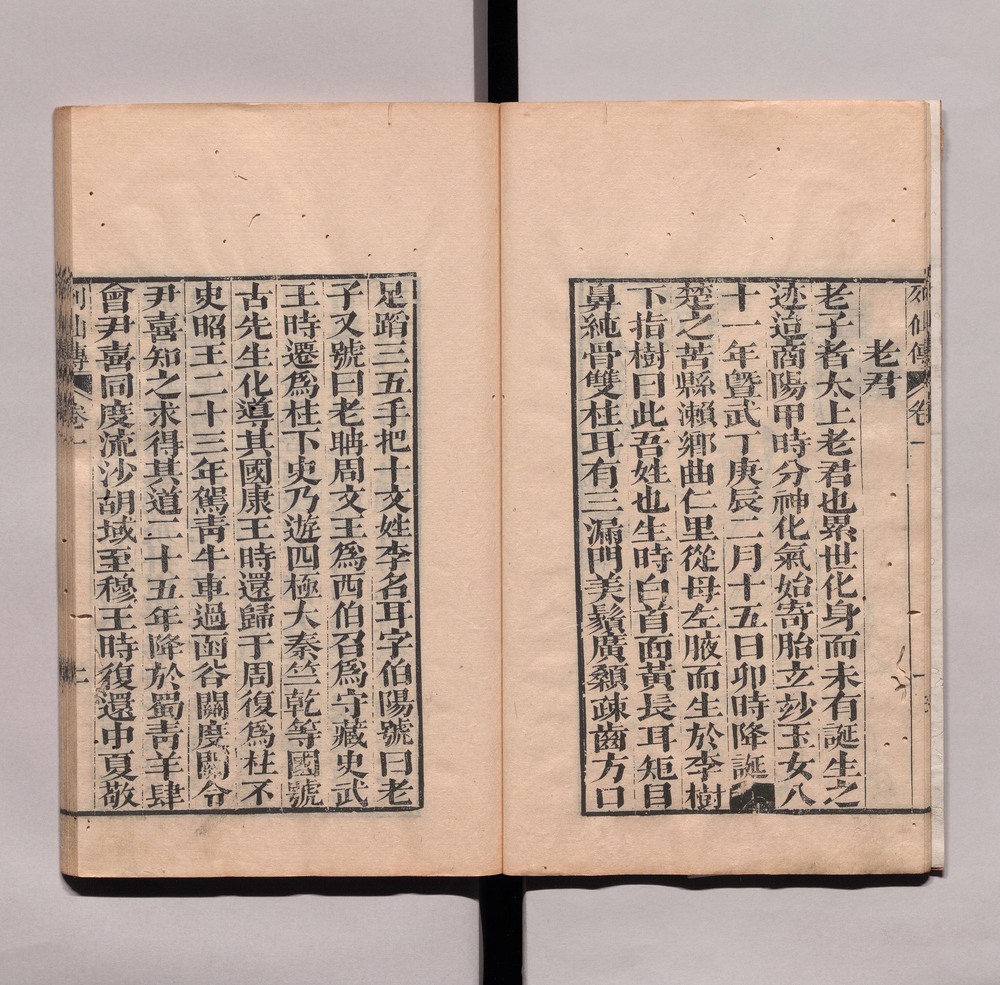 列仙傳 卷一 一
老君
老子者太上老君也累世化身而未有誕生之
迹迨商陽甲時分神化氣始寄胎玄妙玉女八
十一年曁武丁庚辰二月十五日卯時降誕
楚之苦縣瀨鄉曲仁里從母左腋而生於李樹
下指樹曰此吾姓也生時白首面黃長耳矩目
鼻純骨雙柱耳有三漏門美鬚廣顙疎齒方口
足蹈三五手把十文姓李名耳字伯陽號曰老
子又號曰老聃周文王爲西伯召爲守藏史武
王時遷爲柱下史乃遊四極大秦竺乾等國號
古先生化導其國康王時還歸于周復爲柱下
史昭王二十三年駕靑牛車過函谷關度關令
尹喜知之求得其道二十五年降於蜀靑羊肆
會尹喜同度流沙胡域至穆王時復還中夏敬
列仙傳 卷一 二